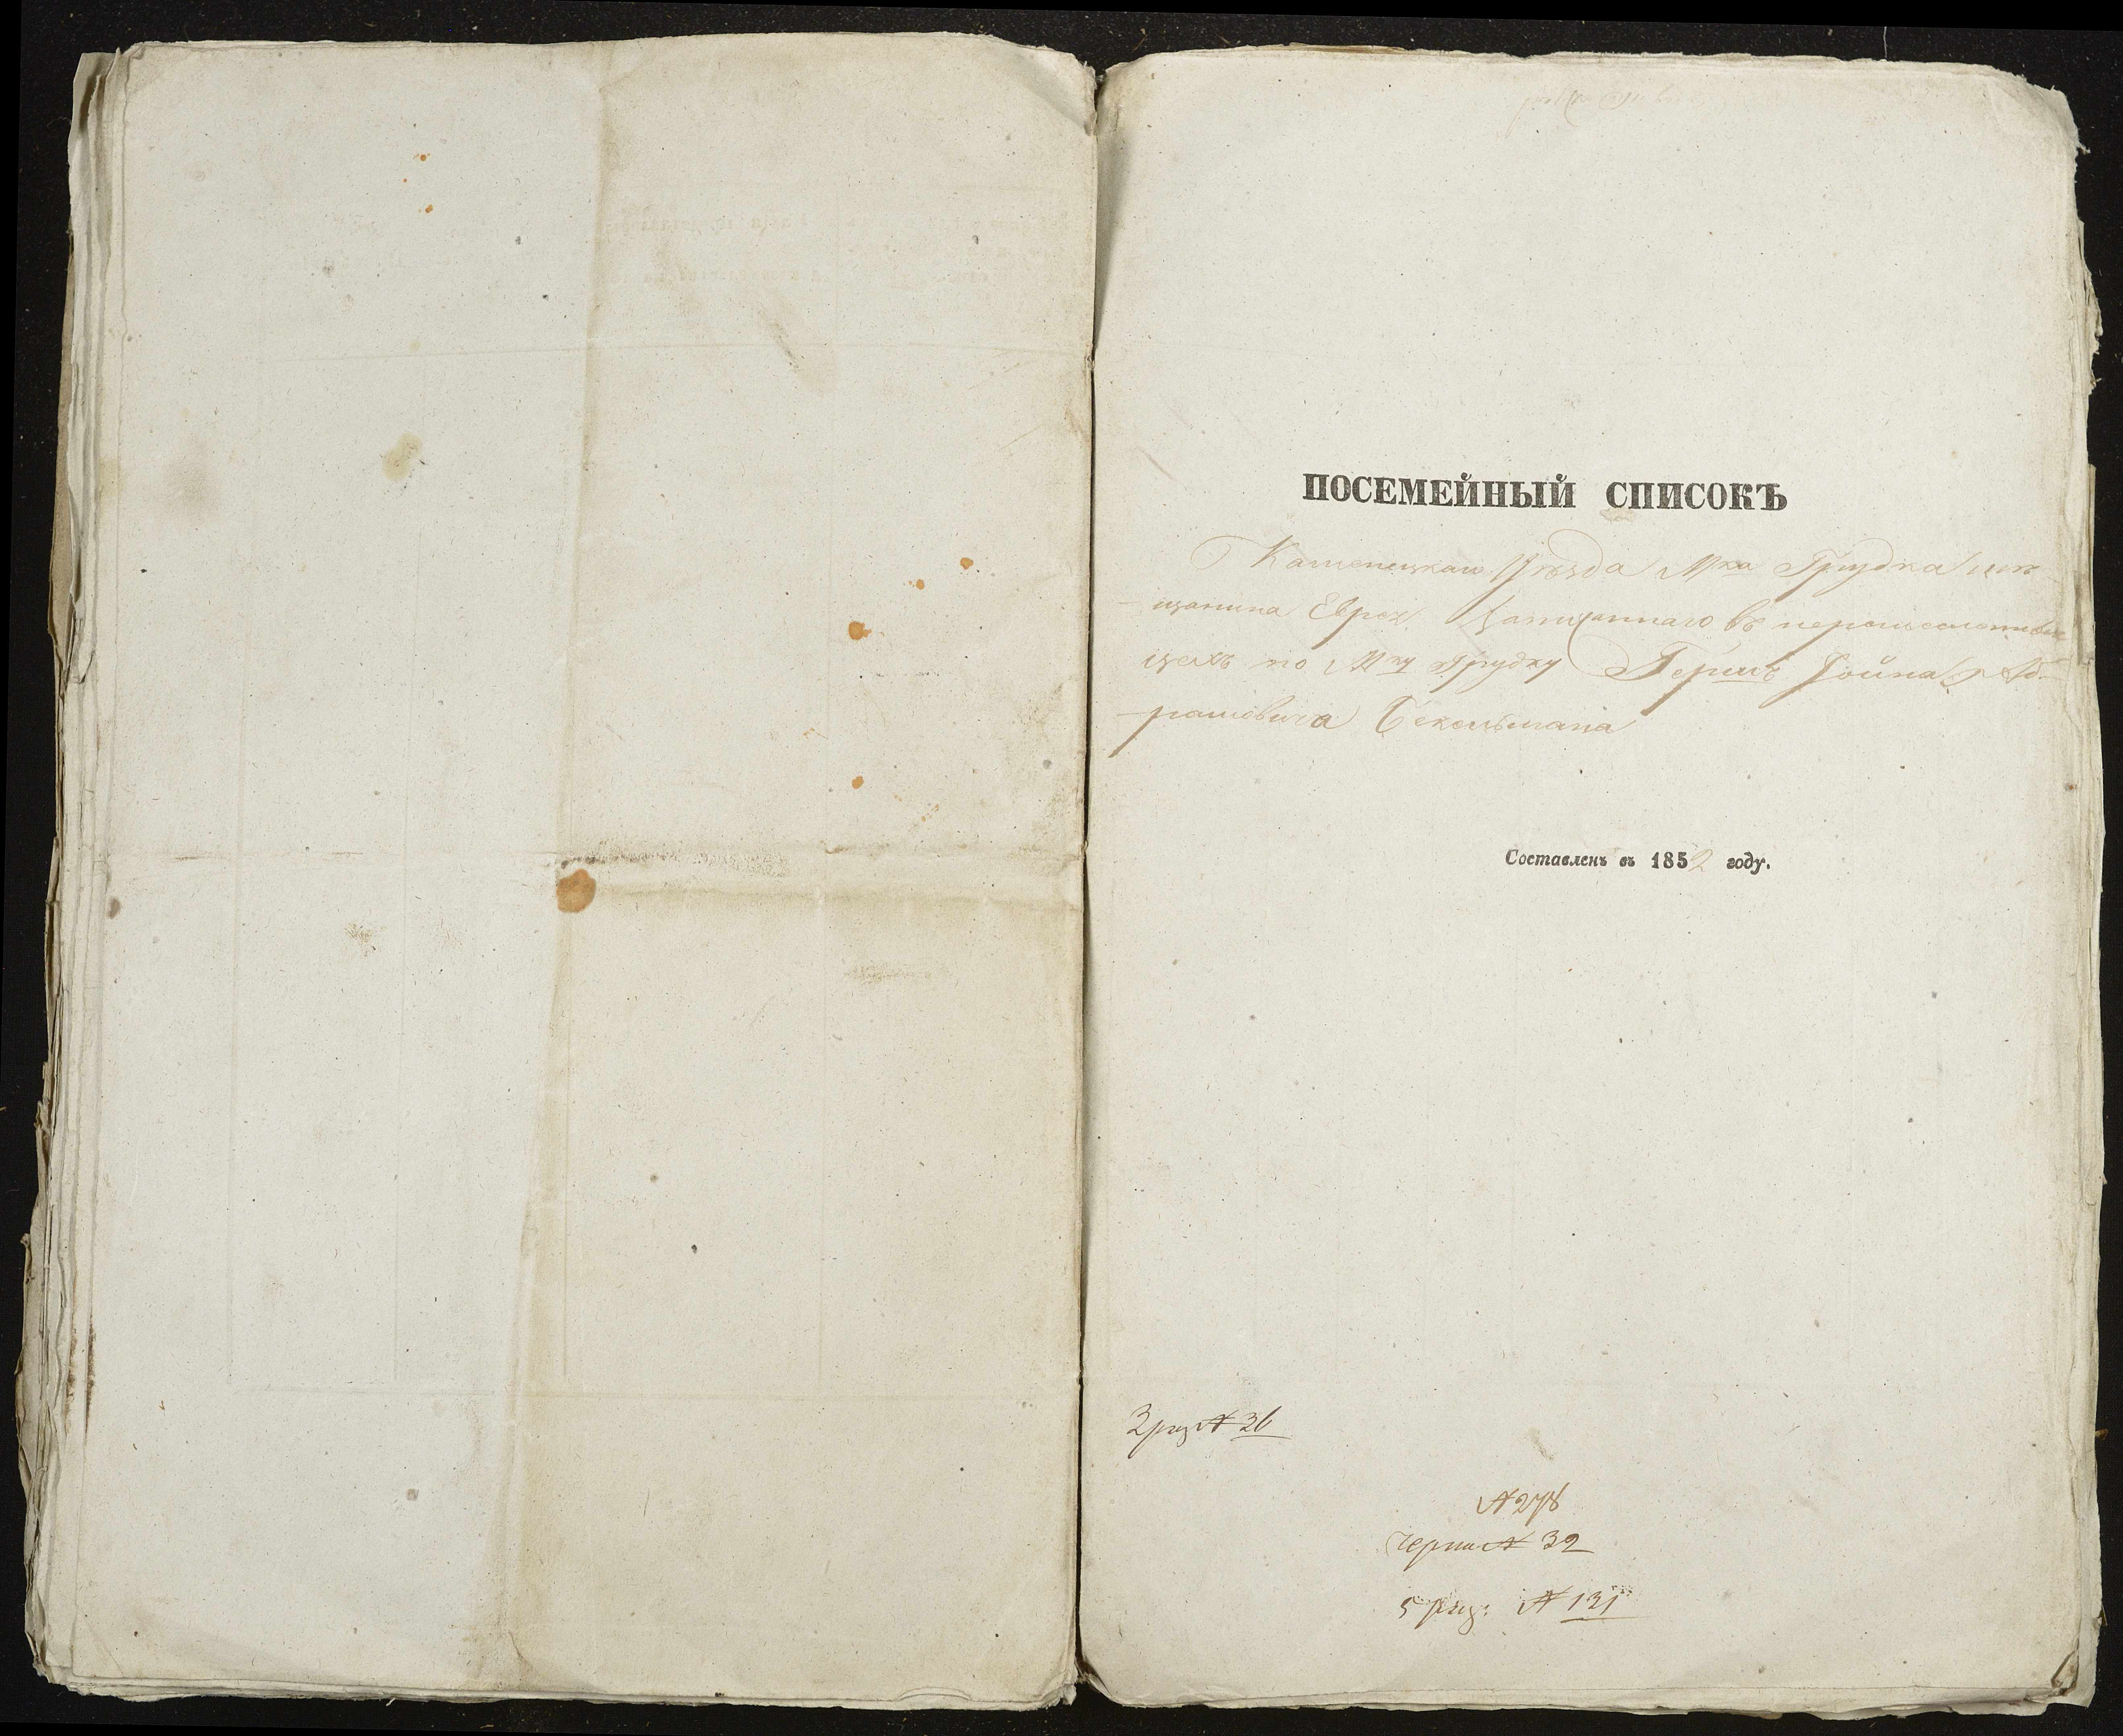 ПОСЕМЕЙНЫЙ СПИСОКЪ
Каменецкаго Уѣзда Мка Грудка мѣ-
щанина Еврея Записаннаго въ
цехъ по Мку Грудку Гершъ Сойна Аб-
рамовича Секельмана
Составленъ въ 1852 году.
3 раз № 36
№ 278
Черни № 32
5 раз: № 131